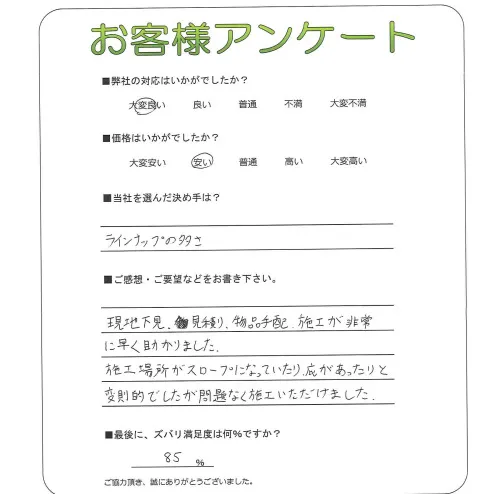 お客様アンケート
■弊社の対応はいかがでしたか？
大変良い 良い 普通 不満 大変不満
■価格はいかがでしたか？
大変安い 安い 普通 高い 大変高い
■当社を選んだ決め手は？
ラインナップの多さ
■ご感想・ご要望などをお書き下さい。
現地下見、見積り、物品手配、施工が非常
に早く助かりました。
施工場所がスロープになっていたり、底があったりと
変則的でしたが問題なく施工いただけました。
■最後に、ズバリ満足度は何%ですか？
85 %
ご協力頂き、誠にありがとうございました。